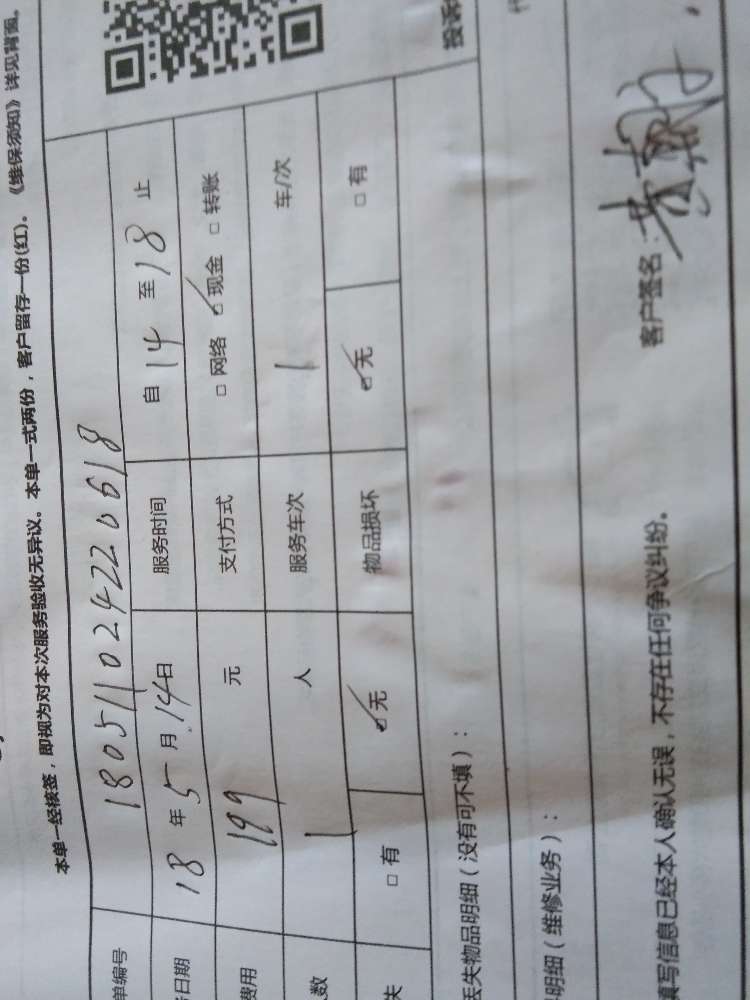 本单一经核签，即视为对本次服务验收无异议。本单一式两份，客户留存一份(红)。《维保须知》详见背面。
单编号 180511024220618
日期 18 年 5 月 14 日 服务时间 自 14 至 18 止
费用 199 元 支付方式 □ 网络 ☑ 现金 □ 转账
数 1 人 服务车次 1 车/次
失 □ 有 ☑ 无 物品损坏 ☑ 无 □ 有
丢失物品明细（没有可不填）： 投诉
明细（维修业务）：
填写信息已经本人确认无误，不存在任何争议纠纷。 客户签名：